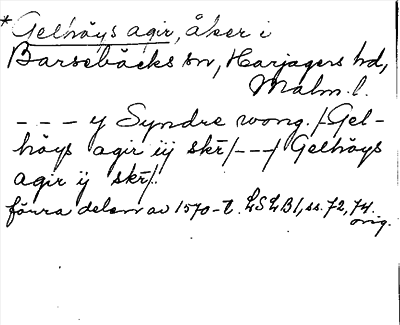 *Gelhöys agir, åker i
Barsebäcks sn, Harjagers hd,
Malm. l.
- - - y Syndre wong. / Gel-
höys agir iij skr̄/ - - -/ Gelhöys
agir ij skr̄/.
förra delen av 1570-t. LSLB1, ss. 72, 74.
orig.